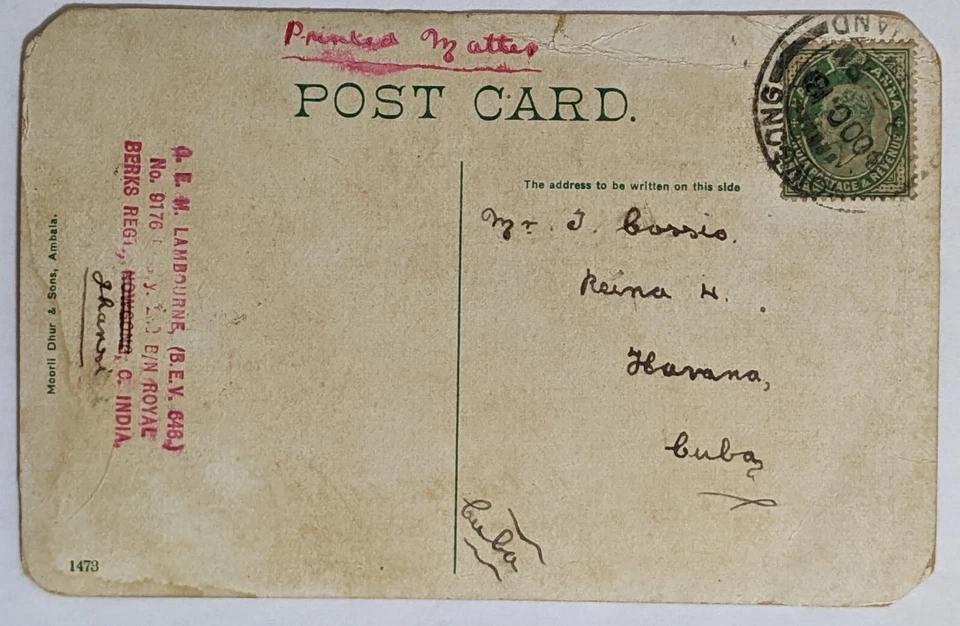 Printed Matter
POST CARD.
The address to be written on this side
Mr. J. Cossio.
Reina 4.
Havana,
Cuba
Cuba
G. E. M. LAMBOURNE, (B.E.V. 648.)
No. 9176 B/N ROYAL
BERKS REGT., NOWGONG, C. INDIA.
Jhansi
Moorli Dhur & Sons, Ambala.
1473
HALF ANNA
POSTAGE & REVENUE